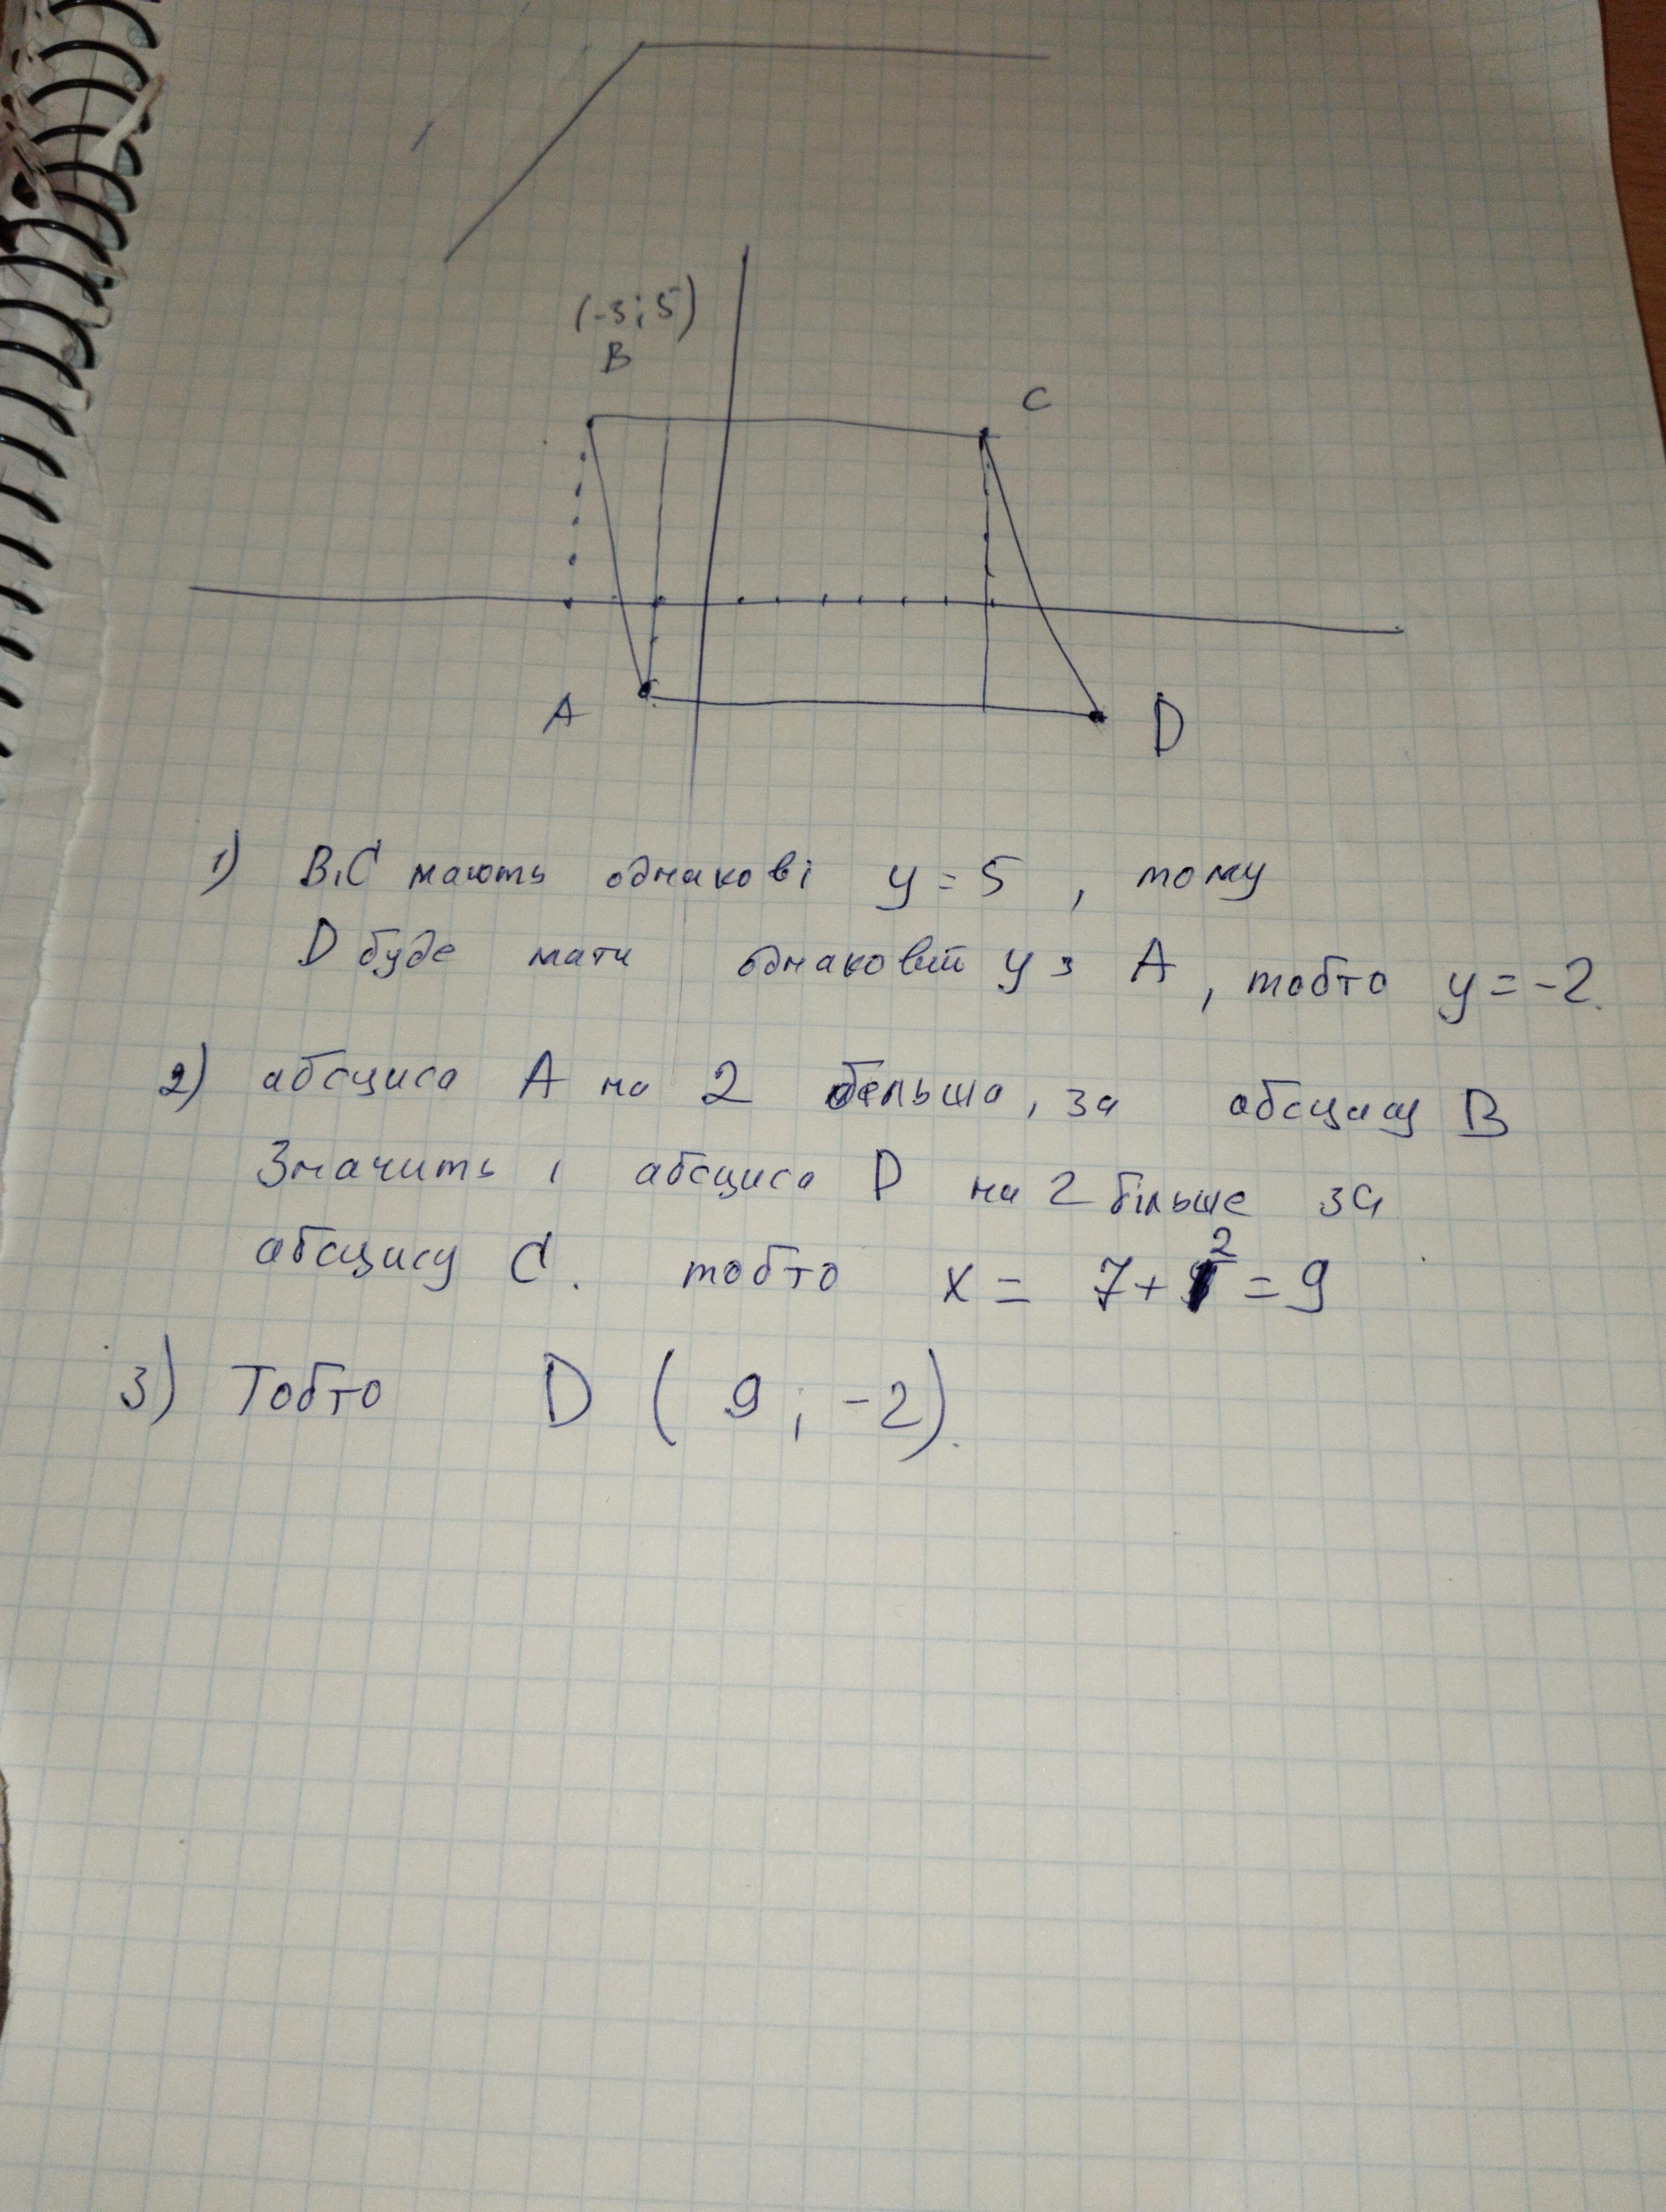 (-3; 5)
B
C
A
D
1) B,C мають однакові y = 5 , тому
D буде мати однаковий y з A , тобто y = -2.
2) абсциса A на 2 більша, за абсцису B
Значить і абсциса D на 2 більше за
абсцису C. тобто x = 7+2 = 9
3) Тобто D ( 9 ; -2).